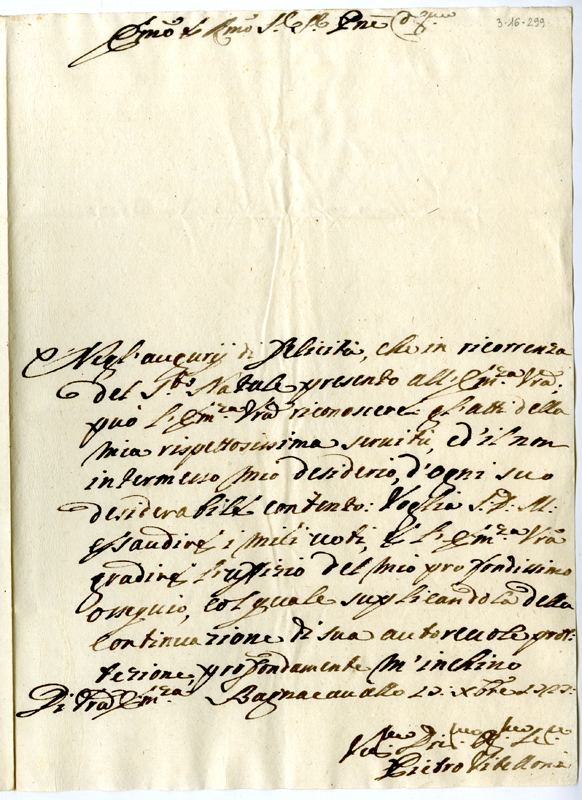 3-16-299
Em̃o e Rmo Sr. Sr. Pne
Negl'augurij di felicità, che in ricorrenza
del S.to Natale presento all'Em.za Vrã,
può l'Em.za Vrã riconoscere gl'atti della
mia rispettosissima servitù, ed il non
intermesso mio desiderio, d'ogni suo
desiderabile contento: Voglia S. D. M:
essaudire i miei voti, e l'Em.za Vrã
gradire l'uffizio del mio profondissimo
ossequio, col quale suplicandola della
continuazione di sua autorevole prot:
tezione, profondamente m'inchino
Di Vrã Em.za, Bagnacavallo Xbre
Pietro